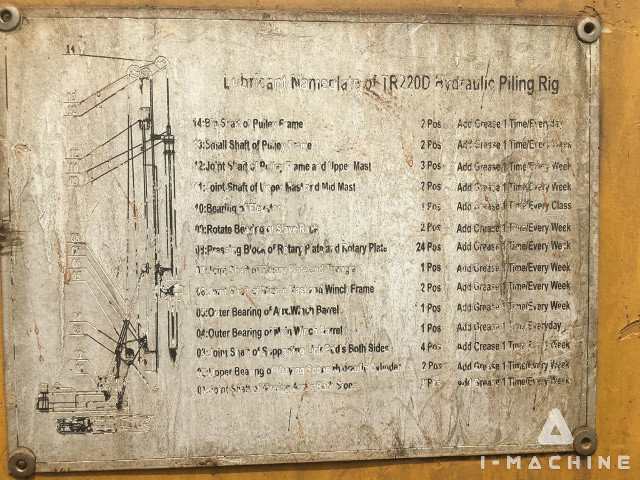 14
Lubricant Nameplate of TR220D Hydraulic Piling Rig
14:Big Shaft of Pulley Frame 2 Pos Add Grease 1 Time/Everyday
13:Small Shaft of Pulley Frame 2 Pos Add Grease 1 Time/Every Week
12:Joint Shaft of Pulley Frame and Upper Mast 3 Pos Add Grease 1 Time/Every Week
11:Joint Shaft of Upper Mast and Mid Mast 2 Pos Add Grease 1 Time/Every Week
10:Bearing of 1 Pos Add Grease 1 Time/Every Class
09:Rotate Bearing of Slave 2 Pos Add Grease 1 Time/Every Week
08:Pressing Block of Rotary Plate and Rotary Plate 24 Pos Add Grease 1 Time/Every Week
Shaft of Rotary Plate and 1 Pos Add Grease 1 Time/Every Week
Shaft of Winch Frame 2 Pos Add Grease 1 Time/Every Week
05:Outer Bearing of Aux.Winch Barrel 1 Pos Add Grease 1 Time/Every Week
04:Outer Bearing of Main Winch Barrel 1 Pos Add Grease 1 Time Everyday
03:Joint Shaft of Supporting Both Sides 4 Pos Add Grease 1 Time/Every Week
Upper Bearing of Cylinder 2 Pos Add Grease 1 Time/Every Week
01:Joint Shaft of Both Sides Pos Add Grease 1 Time/Every Week
I-MACHINE